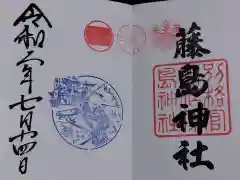 藤島神社
別格官
島神社
令和二年七月十四日